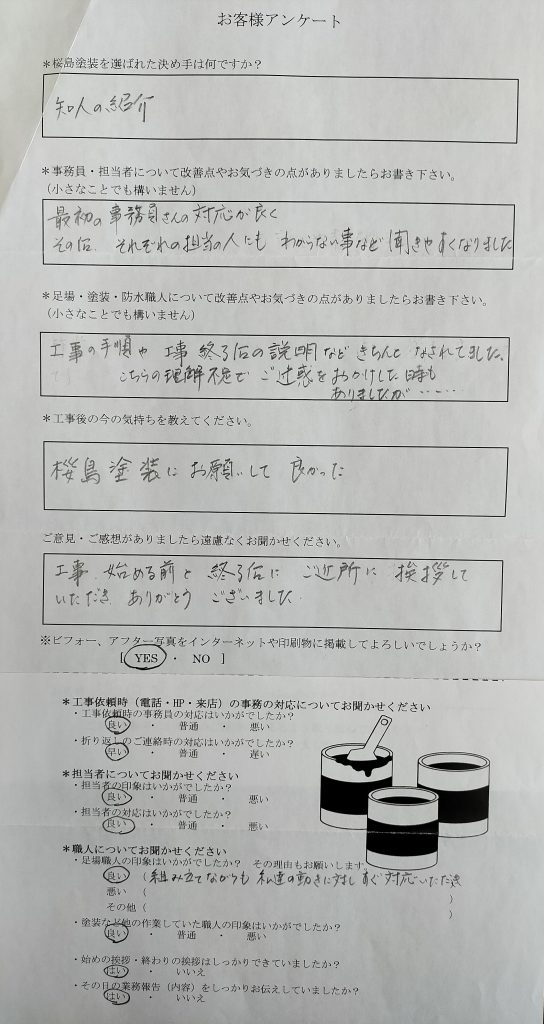 お客様アンケート
＊桜島塗装を選ばれた決め手は何ですか？
知人の紹介
＊事務員・担当者について改善点やお気づきの点がありましたらお書き下さい。
（小さなことでも構いません）
最初の事務員さんの対応が良く
その后、それぞれの担当の人にも わからない事など 聞きやすくなりました
＊足場・塗装・防水職人について改善点やお気づきの点がありましたらお書き下さい。
（小さなことでも構いません）
工事の手順や 工事終了后の説明など きちんと なされてました、
こちらの理解不足で ご迷惑をおかけした時も
ありましたが……
＊工事後の今の気持ちを教えてください。
桜島塗装に お願いして 良かった
ご意見・ご感想がありましたら遠慮なくお聞かせください。
工事、始める前と 終了后に ご近所に 挨拶して
いただき ありがとう ございました.
※ビフォー、アフター写真をインターネットや印刷物に掲載してよろしいでしょうか？
[ YES ・ NO ]
＊工事依頼時（電話・HP・来店）の事務の対応についてお聞かせください
・工事依頼時の事務員の対応はいかがでしたか？
良い ・ 普通 ・ 悪い
・折り返しのご連絡時の対応はいかがでしたか？
早い ・ 普通 ・ 遅い
＊担当者についてお聞かせください
・担当者の印象はいかがでしたか？
良い ・ 普通 ・ 悪い
・担当者の対応はいかがでしたか？
良い ・ 普通 ・ 悪い
＊職人についてお聞かせください
・足場職人の印象はいかがでしたか？ その理由もお願いします
良い （組み立てながらも 私達の動きに対し すぐ対応いただき
悪い （ ）
その他（ ）
・塗装など他の作業していた職人の印象はいかがでしたか？
良い ・ 普通 ・ 悪い
・始めの挨拶・終わりの挨拶はしっかりできていましたか？
はい ・ いいえ
・その日の業務報告（内容）をしっかりお伝えしていましたか？
はい ・ いいえ